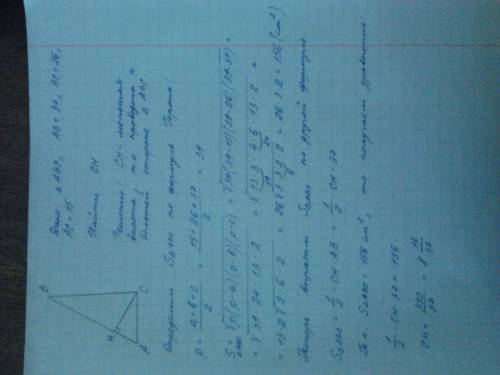 Дано: △ABC, AB = 37, BC = 26,
AC = 15
Найти: CH
Решение: CH - меньшая
высота, т.к. проведена к
большей стороне △ABC.
B
H
A
C
Определим S△ABC по формуле Герона:
p = (a+b+c)/2 = (15+26+37)/2 = 39
S△ABC = √(p(p-a)(p-b)(p-c)) = √(39(39-15)(39-26)(39-37)) =
= √(39·24·13·2) = √(13·3·4·6·13·2) =
= 13·2√(3·6·2) = 26√(3·3·2·2) = 26·3·2 = 156 (cm²)
выразим S△ABC по другой формуле
S△ABC = 1/2 · CH · AB = 1/2 · CH · 37
Т.к. S△ABC = 156 cm², то получаем уравнение:
1/2 · CH · 37 = 156.
CH = 312/37 = 8 16/37